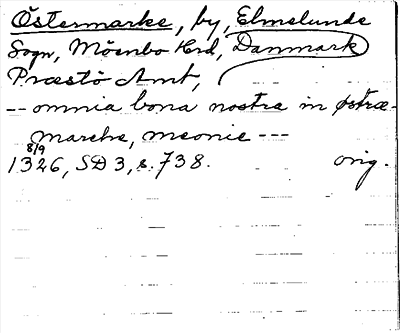 Östermarke, by, Elmelunde
Sogn, Mönbo Hrd, Danmark
Præstö Amt,
-- omnia bona nostra in østræ-
marche, meonie ---
8/9
1326, SD 3, s. 738. orig.